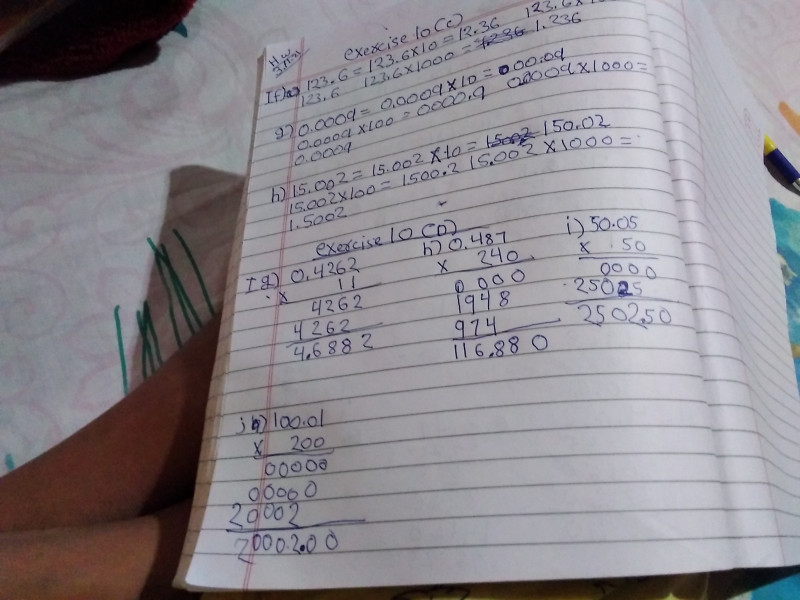 H.W
exercise 10(C)
1 f) 123.6 = 123.6×10 = 12.36 123.6×
123.6 123.6×1000 = 1.236
g) 0.0009 = 0.0009×10 = 00.09
0.0009×100 = 0000.9 0.0009×1000=
0.0009
h) 15.002 = 15.002×10 = 150.02
15.002×100 = 1500.2 15.002×1000 =
1.5002
exercise 10(D)
1 g) 0.4262
× 11
4262
4262
4.6882
h) 0.487
× 240
0000
1948
974
116.880
i) 50.05
× 50
0000
25025
2502.50
j) 100.01
× 200
00000
00000
20002
20002.00